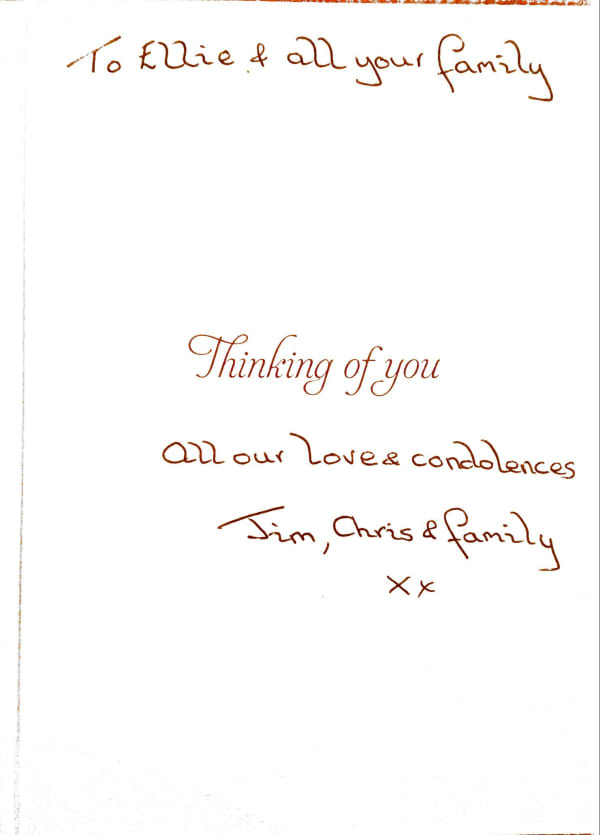 To Ellie & all your family
Thinking of you
All our love & condolences
Jim, Chris & family
xx